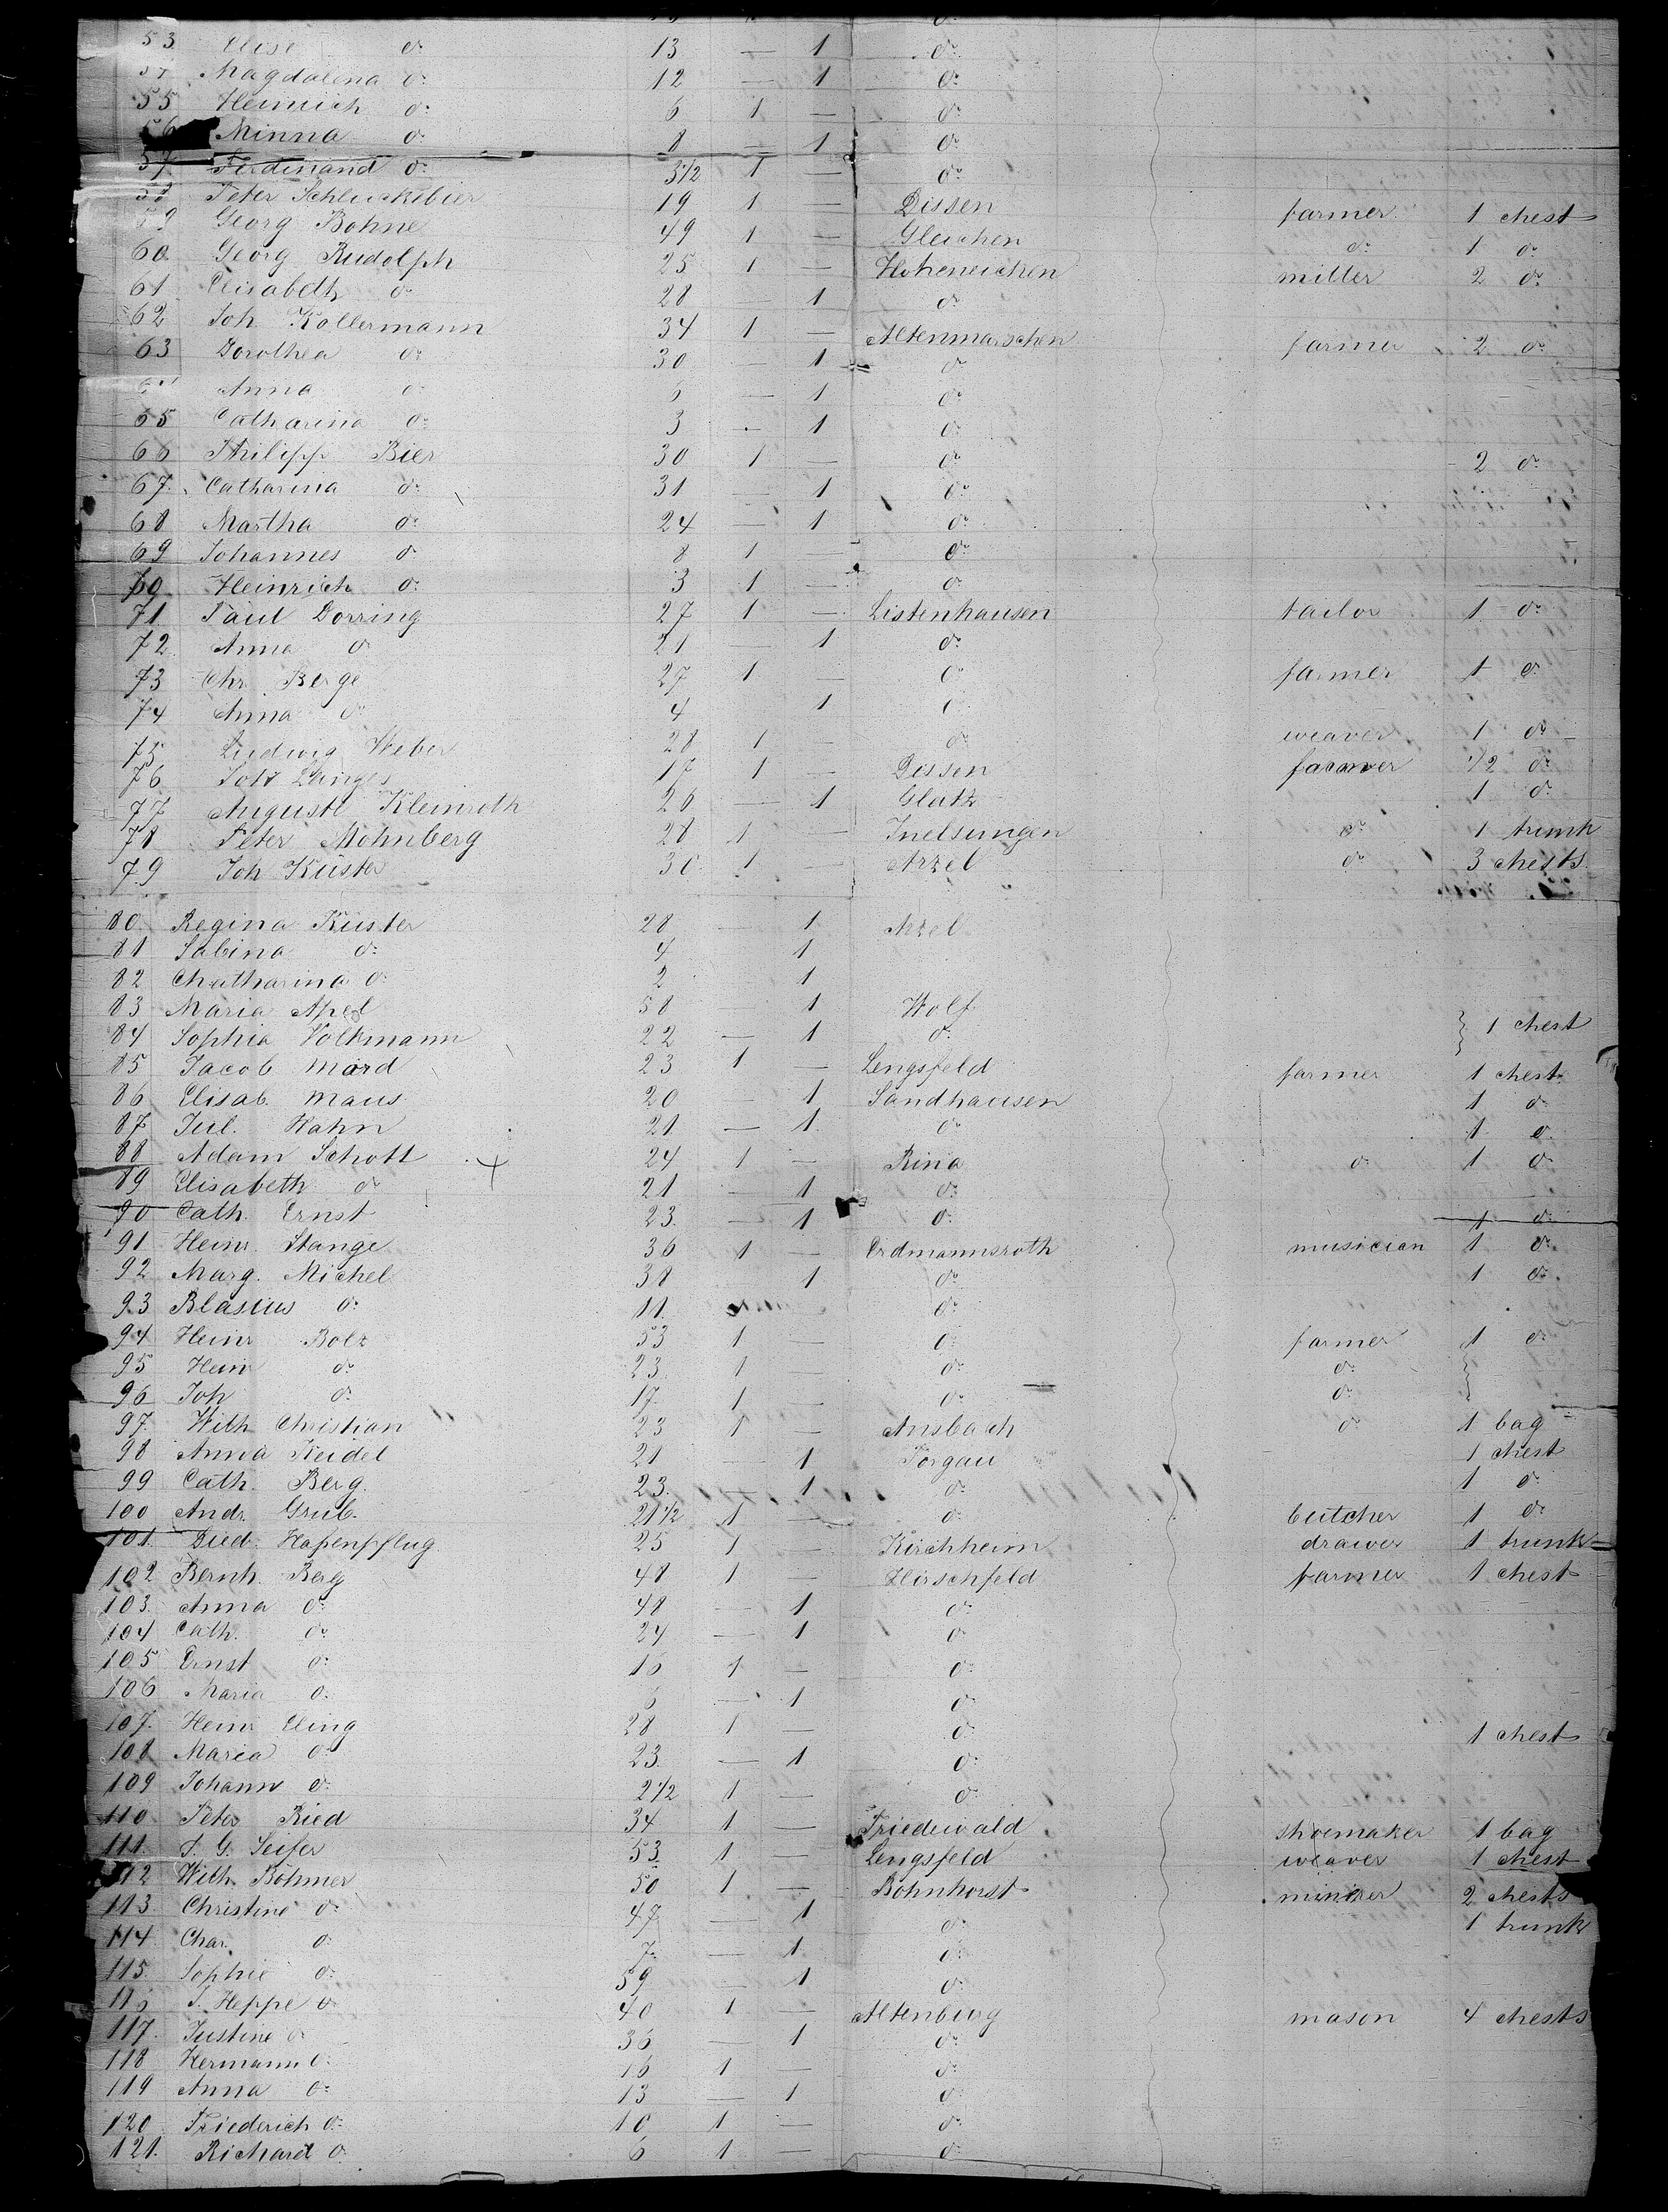 53 Elise do 13 — 1 do
54 Magdalena do 12 — 1 do
55 Heinrich do 6 1 — do
56 Minna do 8 — 1 do
57 Ferdinand do 3 1/2 1 — do
58 Peter Schluckebier 19 1 — Dissen farmer 1 chest
59 Georg Bohne 49 1 — Gleichen do 1 do
60 Georg Rudolph 25 1 — Hoheneichen miller 2 do
61 Elisabeth do 28 — 1 do
62 Joh. Kollermann 34 1 — Altenmorschen farmer 2 do
63 Dorothea do 30 — 1 do
64 Anna do 6 — 1 do
65 Catharina do 3 — 1 do
66 Philipp Bier 30 1 — do 2 do
67 Catharina do 31 — 1 do
68 Martha do 24 — 1 do
69 Johannes do 8 1 — do
70 Heinrich do 3 1 — do
71 Paul Dorring 27 1 — Listenhausen tailor 1 do
72 Anna do 21 — 1 do
73 Chr. Berge 27 1 — do farmer 1 do
74 Anna do 4 1 do
75 Ludwig Weber 28 1 — do weaver 1 do
76 Joh Langes 17 1 — Dissen farmer 1/2 do
77 Auguste Kleinroth 26 — 1 Glatz 1 do
78 Peter Mohnberg 28 1 — do 1 trunk
79 Joh Küster 30 1 — Arzel do 3 chests
80 Regina Küster 28 — 1 Arzel
81 Sabina do 4 1
82 Chatharina do 2 1
83 Maria Apel 58 — 1 Wolf
84 Sophia Volkmann 22 — 1 do } 1 chest
85 Jacob Mard 23 1 — Lengsfeld farmer 1 chest
86 Elisab. Maus 20 — 1 Sandhausen 1 do
87 Jul. Hahn 21 — 1 do 1 do
88 Adam Schott 24 1 — Rina do 1 do
89 Elisabeth do 21 — 1 do
90 Cath. Ernst 23 — 1 do 1 do
91 Heinr. Stange 36 1 — Erdmannsroth musician 1 do
92 Marg. Michel 38 1 do 1 do
93 Blasius do 11 do
94 Heinr Bolz 53 1 — do farmer 1 do
95 Heinr do 23 1 — do do }
96 Joh do 17 1 — do do
97 Wilh Christian 23 1 — Ansbach do 1 bag
98 Anna Keidel 21 — 1 Torgau 1 chest
99 Cath. Berg. 23 — 1 do 1 do
100 Andr. Grub. 21 1/2 1 — do butcher 1 do
101. Died. Hafenpflug 25 1 — Kirchheim drawer 1 trunk
102 Bernh. Berg 48 1 — Hirschfeld farmer 1 chest
103. Anna do 48 — 1 do
104 Cath. do 24 — 1 do
105 Ernst do 16 1 — do
106 Maria do 6 — 1 do
107. Heinr Eling 28 1 — do 1 chest
108 Maria do 23 — 1 do
109 Johann do 2 1/2 1 — do
110 Peter Ried 34 1 — Friedewald shoemaker 1 bag
111. J. G. Seifer 53 1 — Lengsfeld weaver 1 chest
112 Wilh. Böhmer 50 1 — Bohnhorst miner 2 chests
113. Christine do 47 — 1 do 1 trunk
114. Char. do 7 — 1 do
115. Sophie do 59 — 1 do
116 J. Heppe do 40 1 — Altenburg mason 4 chests
117. Justine do 36 — 1 do
118 Hermann do 16 1 — do
119 Anna do 13 — 1 do
120 Friederich do 10 1 — do
121. Richard do 6 1 — do